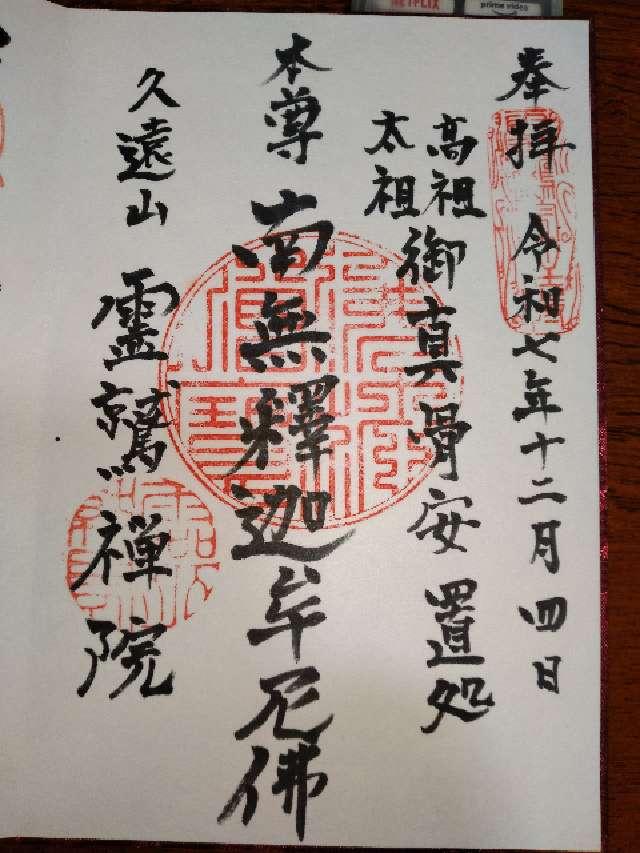 奉拝 令和七年十二月四日
高祖
太祖
御真骨安置処
本尊 南無釋迦牟尼佛
久遠山 霊鷲禅院
prime video
NETFLIX